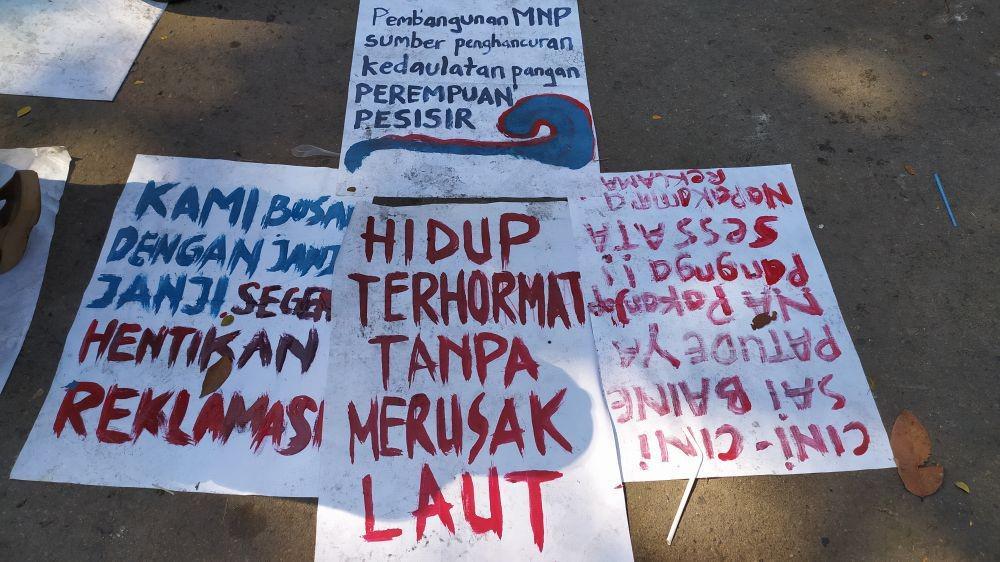 Pembangunan MNP
sumber penghancuran
kedaulatan pangan
PEREMPUAN
PESISIR
KAMI BOSAN
DENGAN JANJI
JANJI SEGERA
HENTIKAN
REKLAMASI
HIDUP
TERHORMAT
TANPA
MERUSAK
LAUT
CINI-CINI
SAI BAINE
PATUDEYA
NA
Pangnga ii
SESSATA
REKLAMA